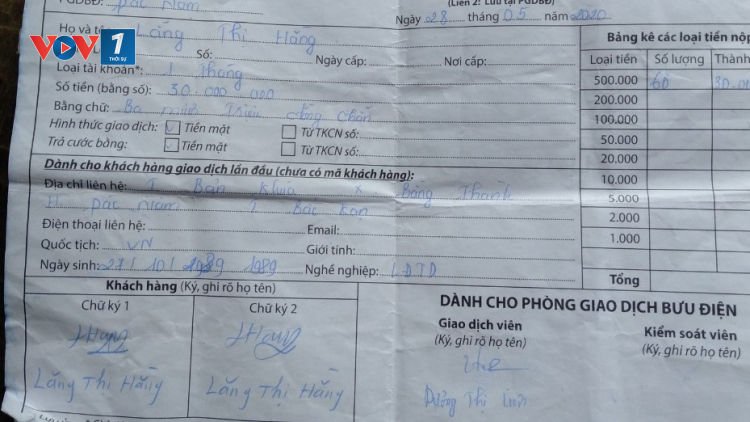 (Liên 2: Lưu tại PGDBĐ)
PGDBĐ: Pác Nặm
Ngày 28 tháng 05 năm 2020
VOV1
THỜI SỰ
Họ và tên: Lăng Thị Hằng
Số: Ngày cấp: Nơi cấp:
Loại tài khoản*: 1 tháng
Số tiền (bằng số): 30.000.000
Bằng chữ: Ba mươi triệu đồng chẵn
Hình thức giao dịch: Tiền mặt Từ TKCN số:
Trả cước bằng: Tiền mặt Từ TKCN số:
Dành cho khách hàng giao dịch lần đầu (chưa có mã khách hàng):
Địa chỉ liên hệ: T Bản Khúa X Bằng Thành
H. Pác Nặm T Bắc Kạn
Điện thoại liên hệ: Email:
Quốc tịch: VN Giới tính:
Ngày sinh: 27/10/1989 1989 Nghề nghiệp: LĐTD
Bảng kê các loại tiền nộp
Loại tiền Số lượng Thành
500.000 60 30.00
200.000
100.000
50.000
20.000
10.000
5.000
2.000
1.000
Tổng
Khách hàng (Ký, ghi rõ họ tên)
Chữ ký 1 Chữ ký 2
Hằng Hằng
Lăng Thị Hằng Lăng Thị Hằng
DÀNH CHO PHÒNG GIAO DỊCH BƯU ĐIỆN
Giao dịch viên Kiểm soát viên
(Ký, ghi rõ họ tên) (Ký, ghi rõ họ tên)
Dương Thị